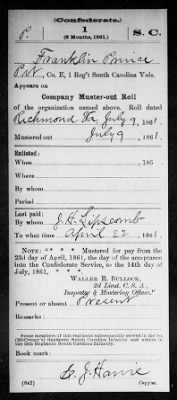 (Confederate.)
P. 1 S. C.
(6 Months, 1861.)
Franklin Prince
Pvt, Co. E, 1 Reg't South Carolina Vols.
Appears on
Company Muster-out Roll
of the organization named above. Roll dated
Richmond Va, July 9, 1861.
Mustered out July 9, 1861.
Enlisted:
When , 186 .
Where
By whom
Period
Last paid:
By whom J. H. Lipscomb
To what time April 22, 1861.
NOTE: * * * * Mustered for pay from the
23d day of April, 1861, the day of the acceptance
into the Confederate Service, to the 14th day of
July, 1861, * * * * *
WALLER R. BULLOCK,
2d Lieut. C. S. A.,
Inspector & Mustering Officer."
Present or absent Present
Remarks:
Some members of this regiment subsequently served in the 1st
(McCreary's) Regiment South Carolina Infantry and others in
the Regiment South Carolina Infantry.
Book mark:
(642) Copyist.